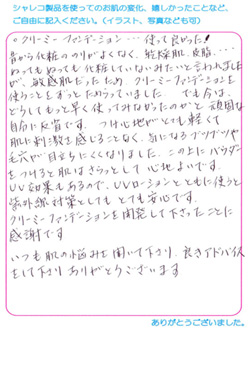 シャレコ製品を使ってのお肌の変化、嬉しかったことなど、
ご自由に記入ください。(イラスト、写真なども可)
○クリーミーファンデーション・・・使って良かった!
昔から化粧ののりがよくなく、乾燥肌、皮脂、・・・
ぬってもぬっても化粧していないみたいと言われました
が、敏感肌だったため、クリーミーファンデーションを
使うことをずっとためらっていました。 でも今は、
どうしてもっと早く使ってみなかったのかと 頑固な
自分に反省です。 つけ心地がとても軽く
肌に刺激を感じることなく、気になるブツブツや
毛穴が目立ちにくくなりました。この上にパウダー
をつけると肌はさらっとして心地よいです。
UV効果もあるので、UVローションとともに使うと
紫外線対策としてもとても安心です。
クリーミーファンデーションを開発して下さったことに
感謝です
いつも肌の悩みを聞いて下さり、良きアドバイス
をして下さりありがとうございます
ありがとうございました。